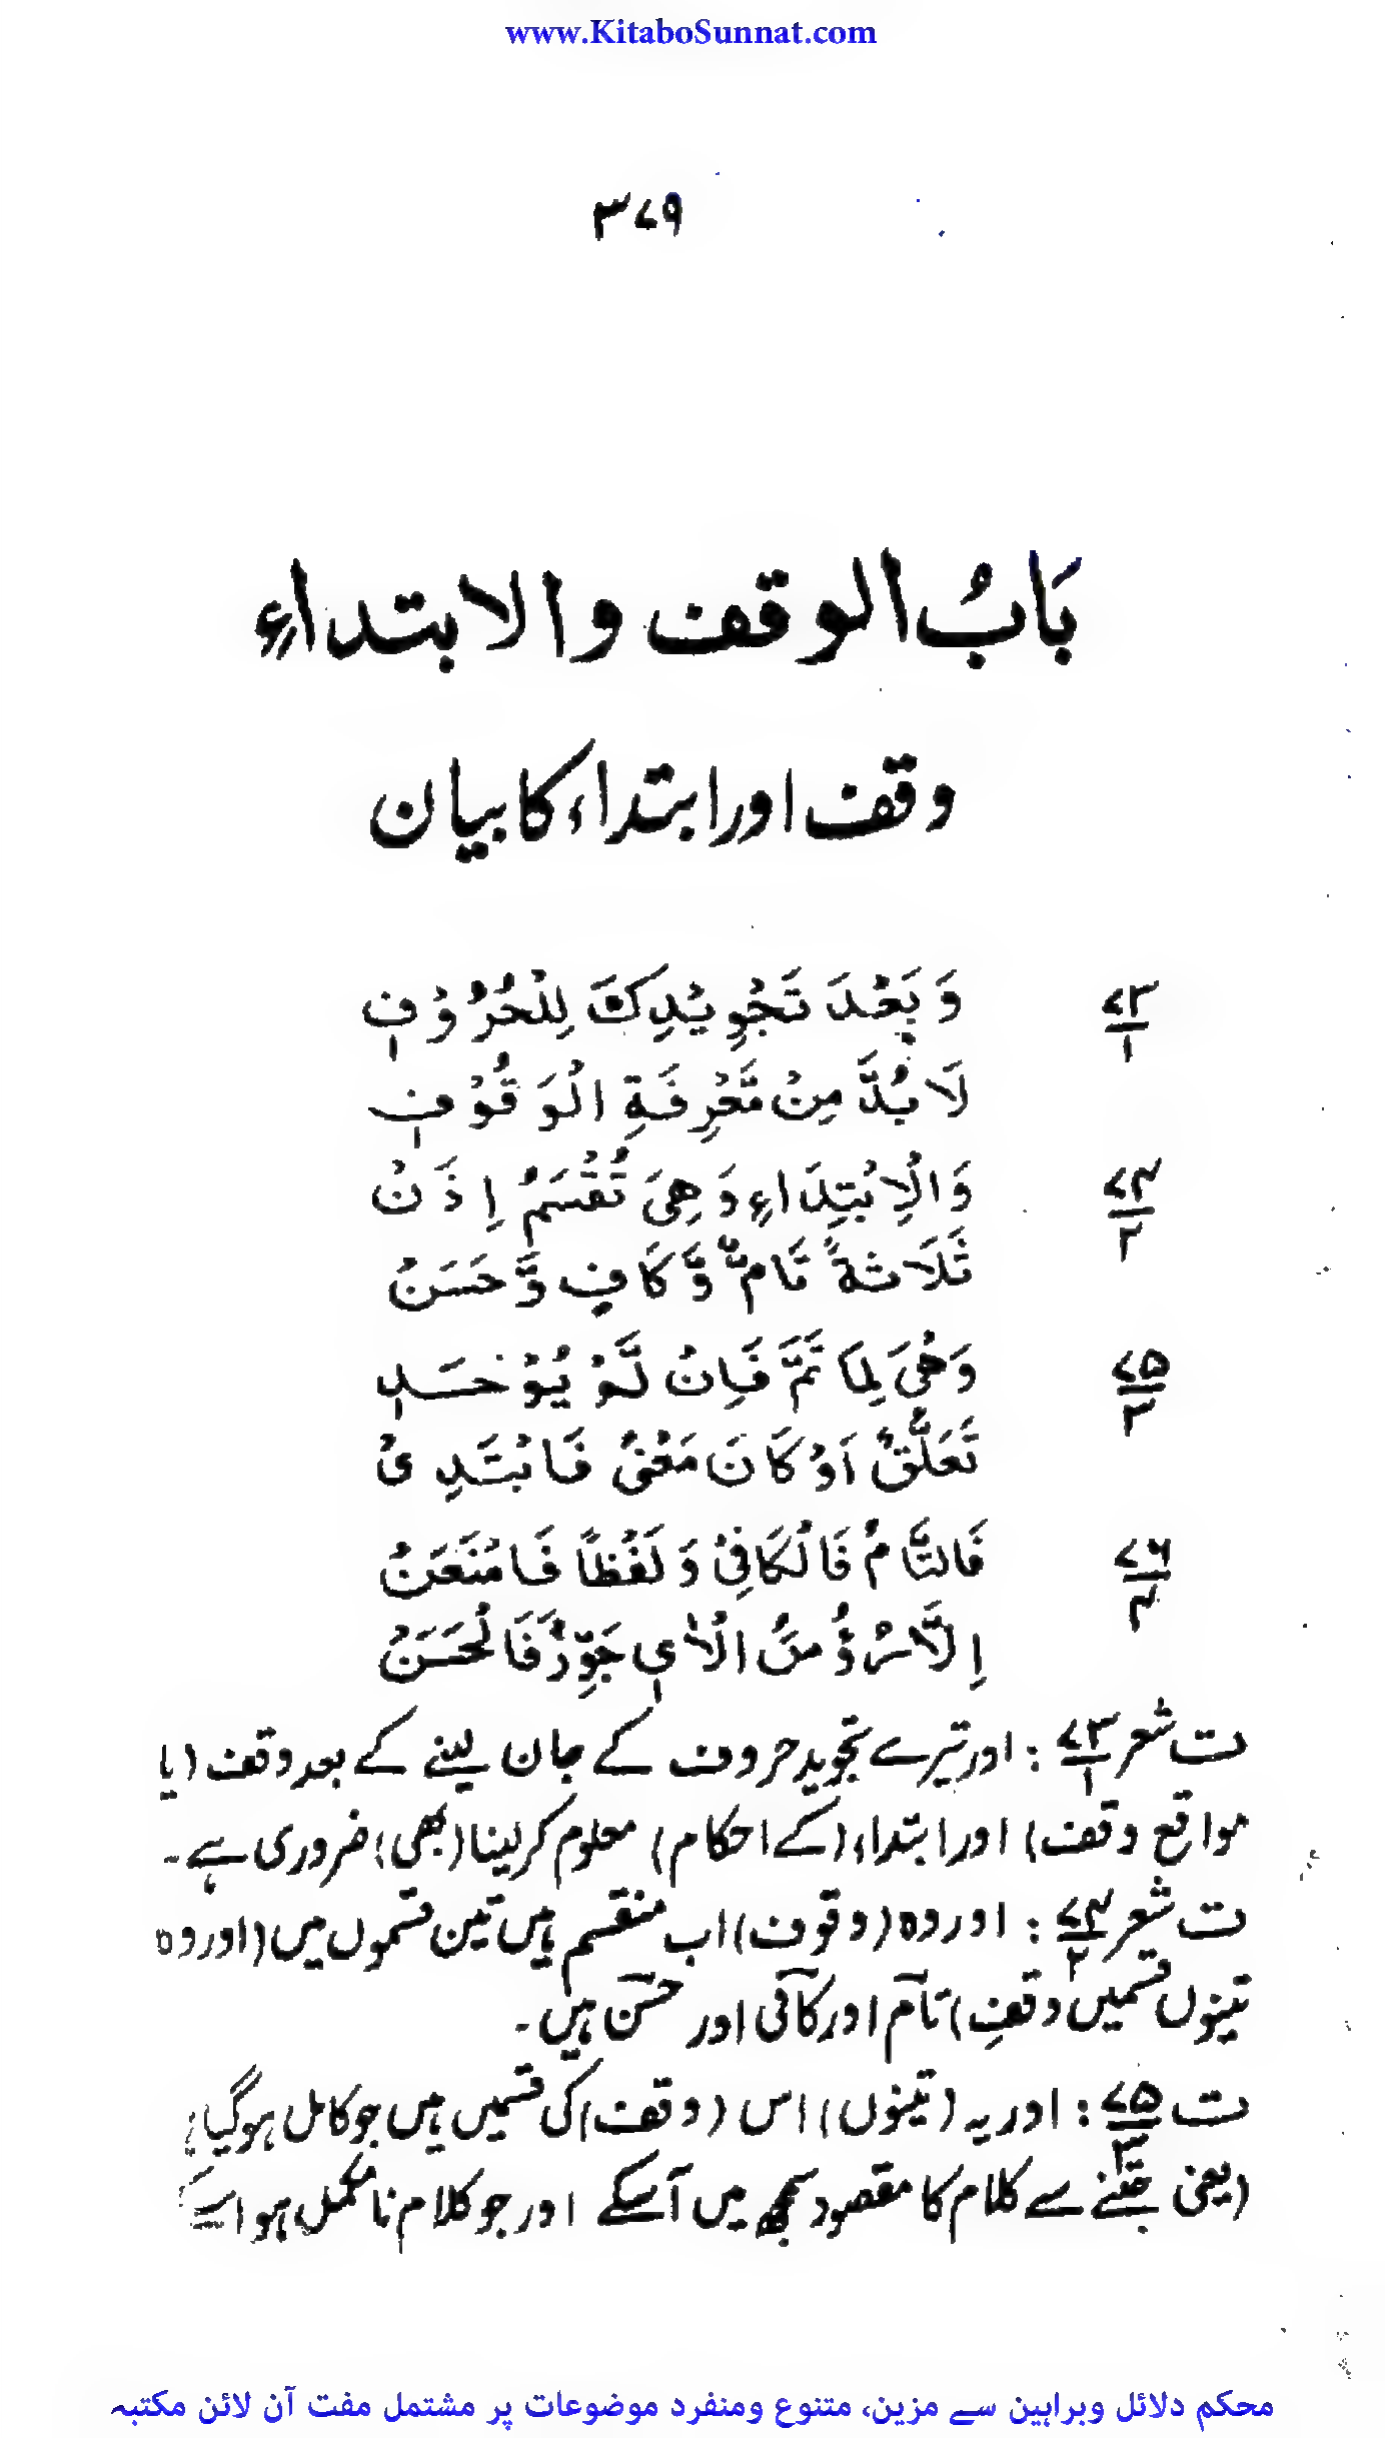 www.KitaboSunnat.com
۳۷۹
بَابُ الوقف والابتداءِ
وقف اور ابتداء کا بیان
۷۳/۱ وَبَعْدَ تَجْوِيْدِكَ لِلْحُرُوْفِ
لَا بُدَّ مِنْ مَّعْرِفَةِ الْوَقُوْفِ
۷۴/۲ وَالْاِبْتِدَاءِ وَهِىَ تُقْسَمُ اِذَنْ
ثَلَاثَةً تَامٌ وَّكَافٍ وَّحَسَنْ
۷۵/۳ وَهْىَ لِمَا تَمَّ فَاِنْ لَّمْ يُوْجَدِ
تَعَلُّقٌ اَوْ كَانَ مَعْنًى فَابْتَدِىْ
۷۶/۴ فَالتَّامُ فَالْكَافِىْ وَلَفْظًا فَامْنَعَنْ
اِلَّا رُؤُسَ الْاٰىِ جَوِّزْ فَالْحَسَنْ
ت شعر ۷۳/۱ : اور تیرے تجوید حروف کے جان لینے کے بعد وقف (یا
مواقع وقف) اور ابتداء (کے احکام) معلوم کر لینا (بھی) ضروری ہے۔
ت شعر ۷۴/۲ : اور وہ (وقوف) اب منقسم ہیں تین قسموں میں (اور وہ
تینوں قسمیں وقفِ) تآم اور کآفی اور حسٓن ہیں۔
ت ۷۵/۳ : اور یہ (تینوں) اس (وقف) کی قسمیں ہیں جو کامل ہو گیا
(یعنی جتنے سے کلام کا مقصود سمجھ میں آسکے اور جو کلام نامکمل ہو اسے
محکم دلائل وبراہین سے مزین، متنوع ومنفرد موضوعات پر مشتمل مفت آن لائن مکتبہ